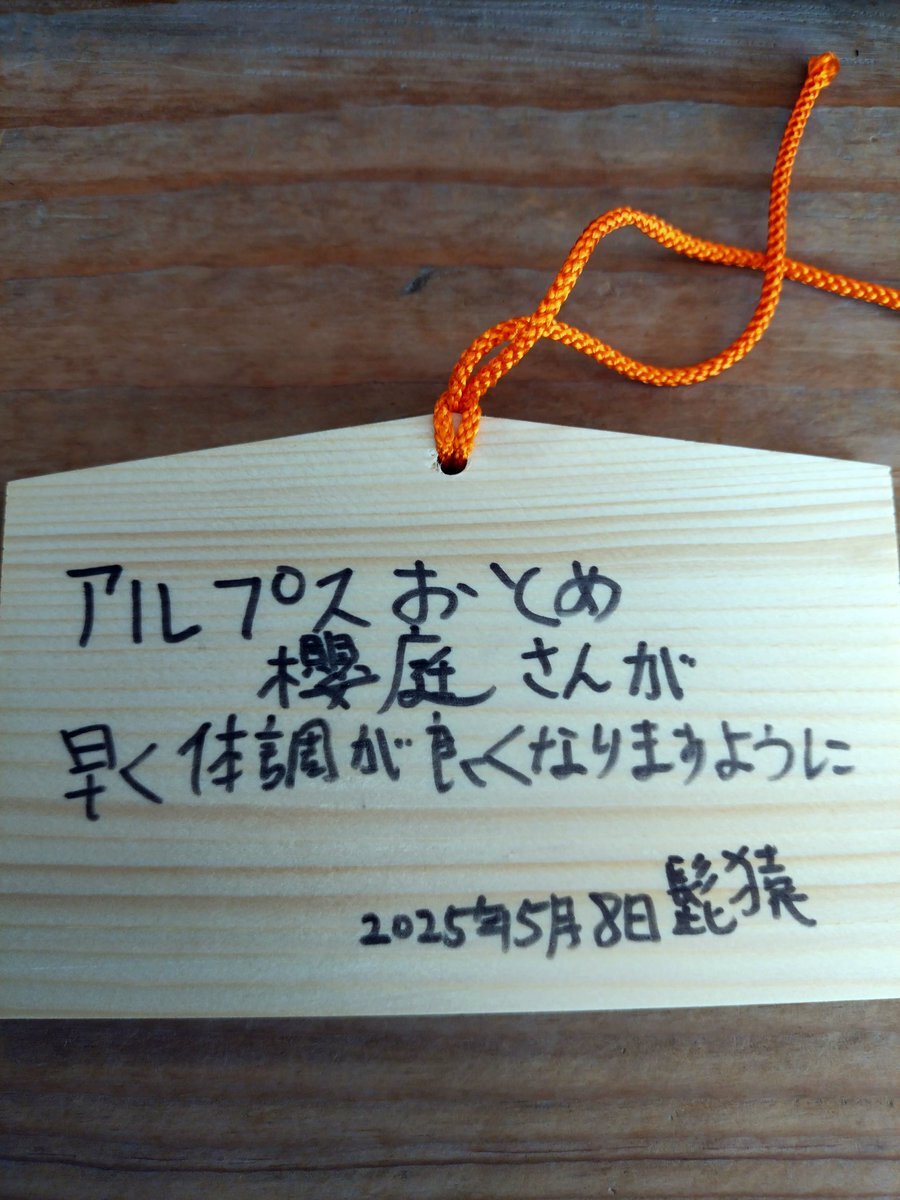 アルプスおとめ
櫻庭さんが
早く体調が良くなりますように
2025年5月8日 髭猿